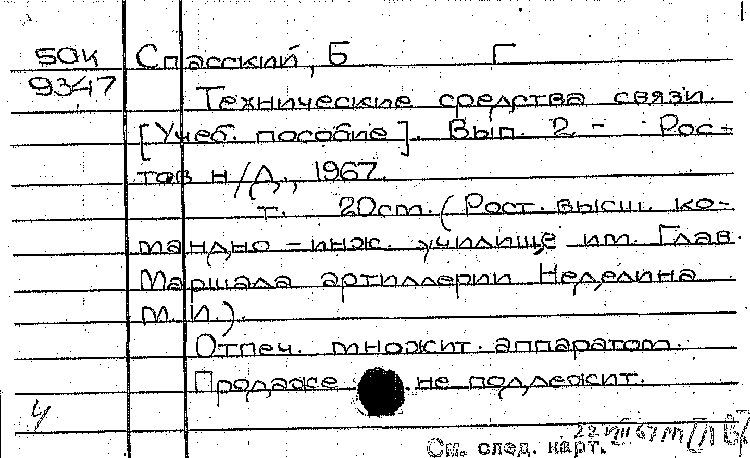 50к Спасский, Б Г
9347 Технические средства связи.
[Учеб. пособие]. Вып. 2 - Рос-
тов н/Д., 1967.
т. 20см. (Рост. высш. ко-
мандно-инж. училище им. Глав.
Маршала артиллерии Неделина
М.И.)
Отпеч. множит. аппаратом.
Продаже не подлежит.
См. след. карт.